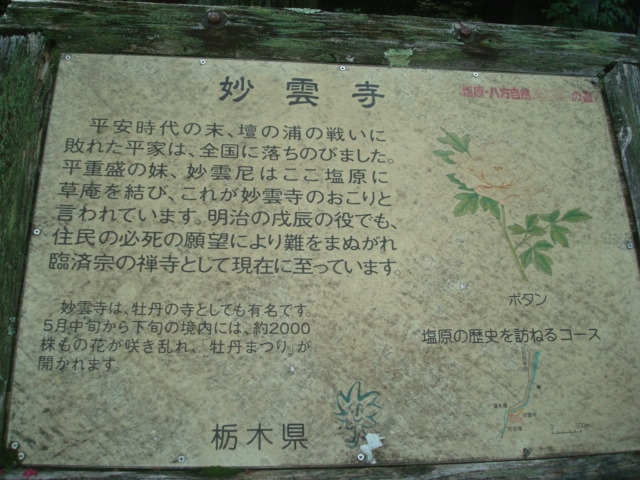 妙雲寺
塩原・八方自然
の道
平安時代の末、壇の浦の戦いに
敗れた平家は、全国に落ちのびました。
平重盛の妹、妙雲尼はここ塩原に
草庵を結び、これが妙雲寺のおこりと
言われています。明治の戊辰の役でも、
住民の必死の願望により難をまぬがれ
臨済宗の禅寺として現在に至っています。
妙雲寺は、牡丹の寺としても有名です。
5月中旬から下旬の境内には、約2000
株もの花が咲き乱れ、「牡丹まつり」が
開かれます。
ボタン
塩原の歴史を訪ねるコース
栃木県